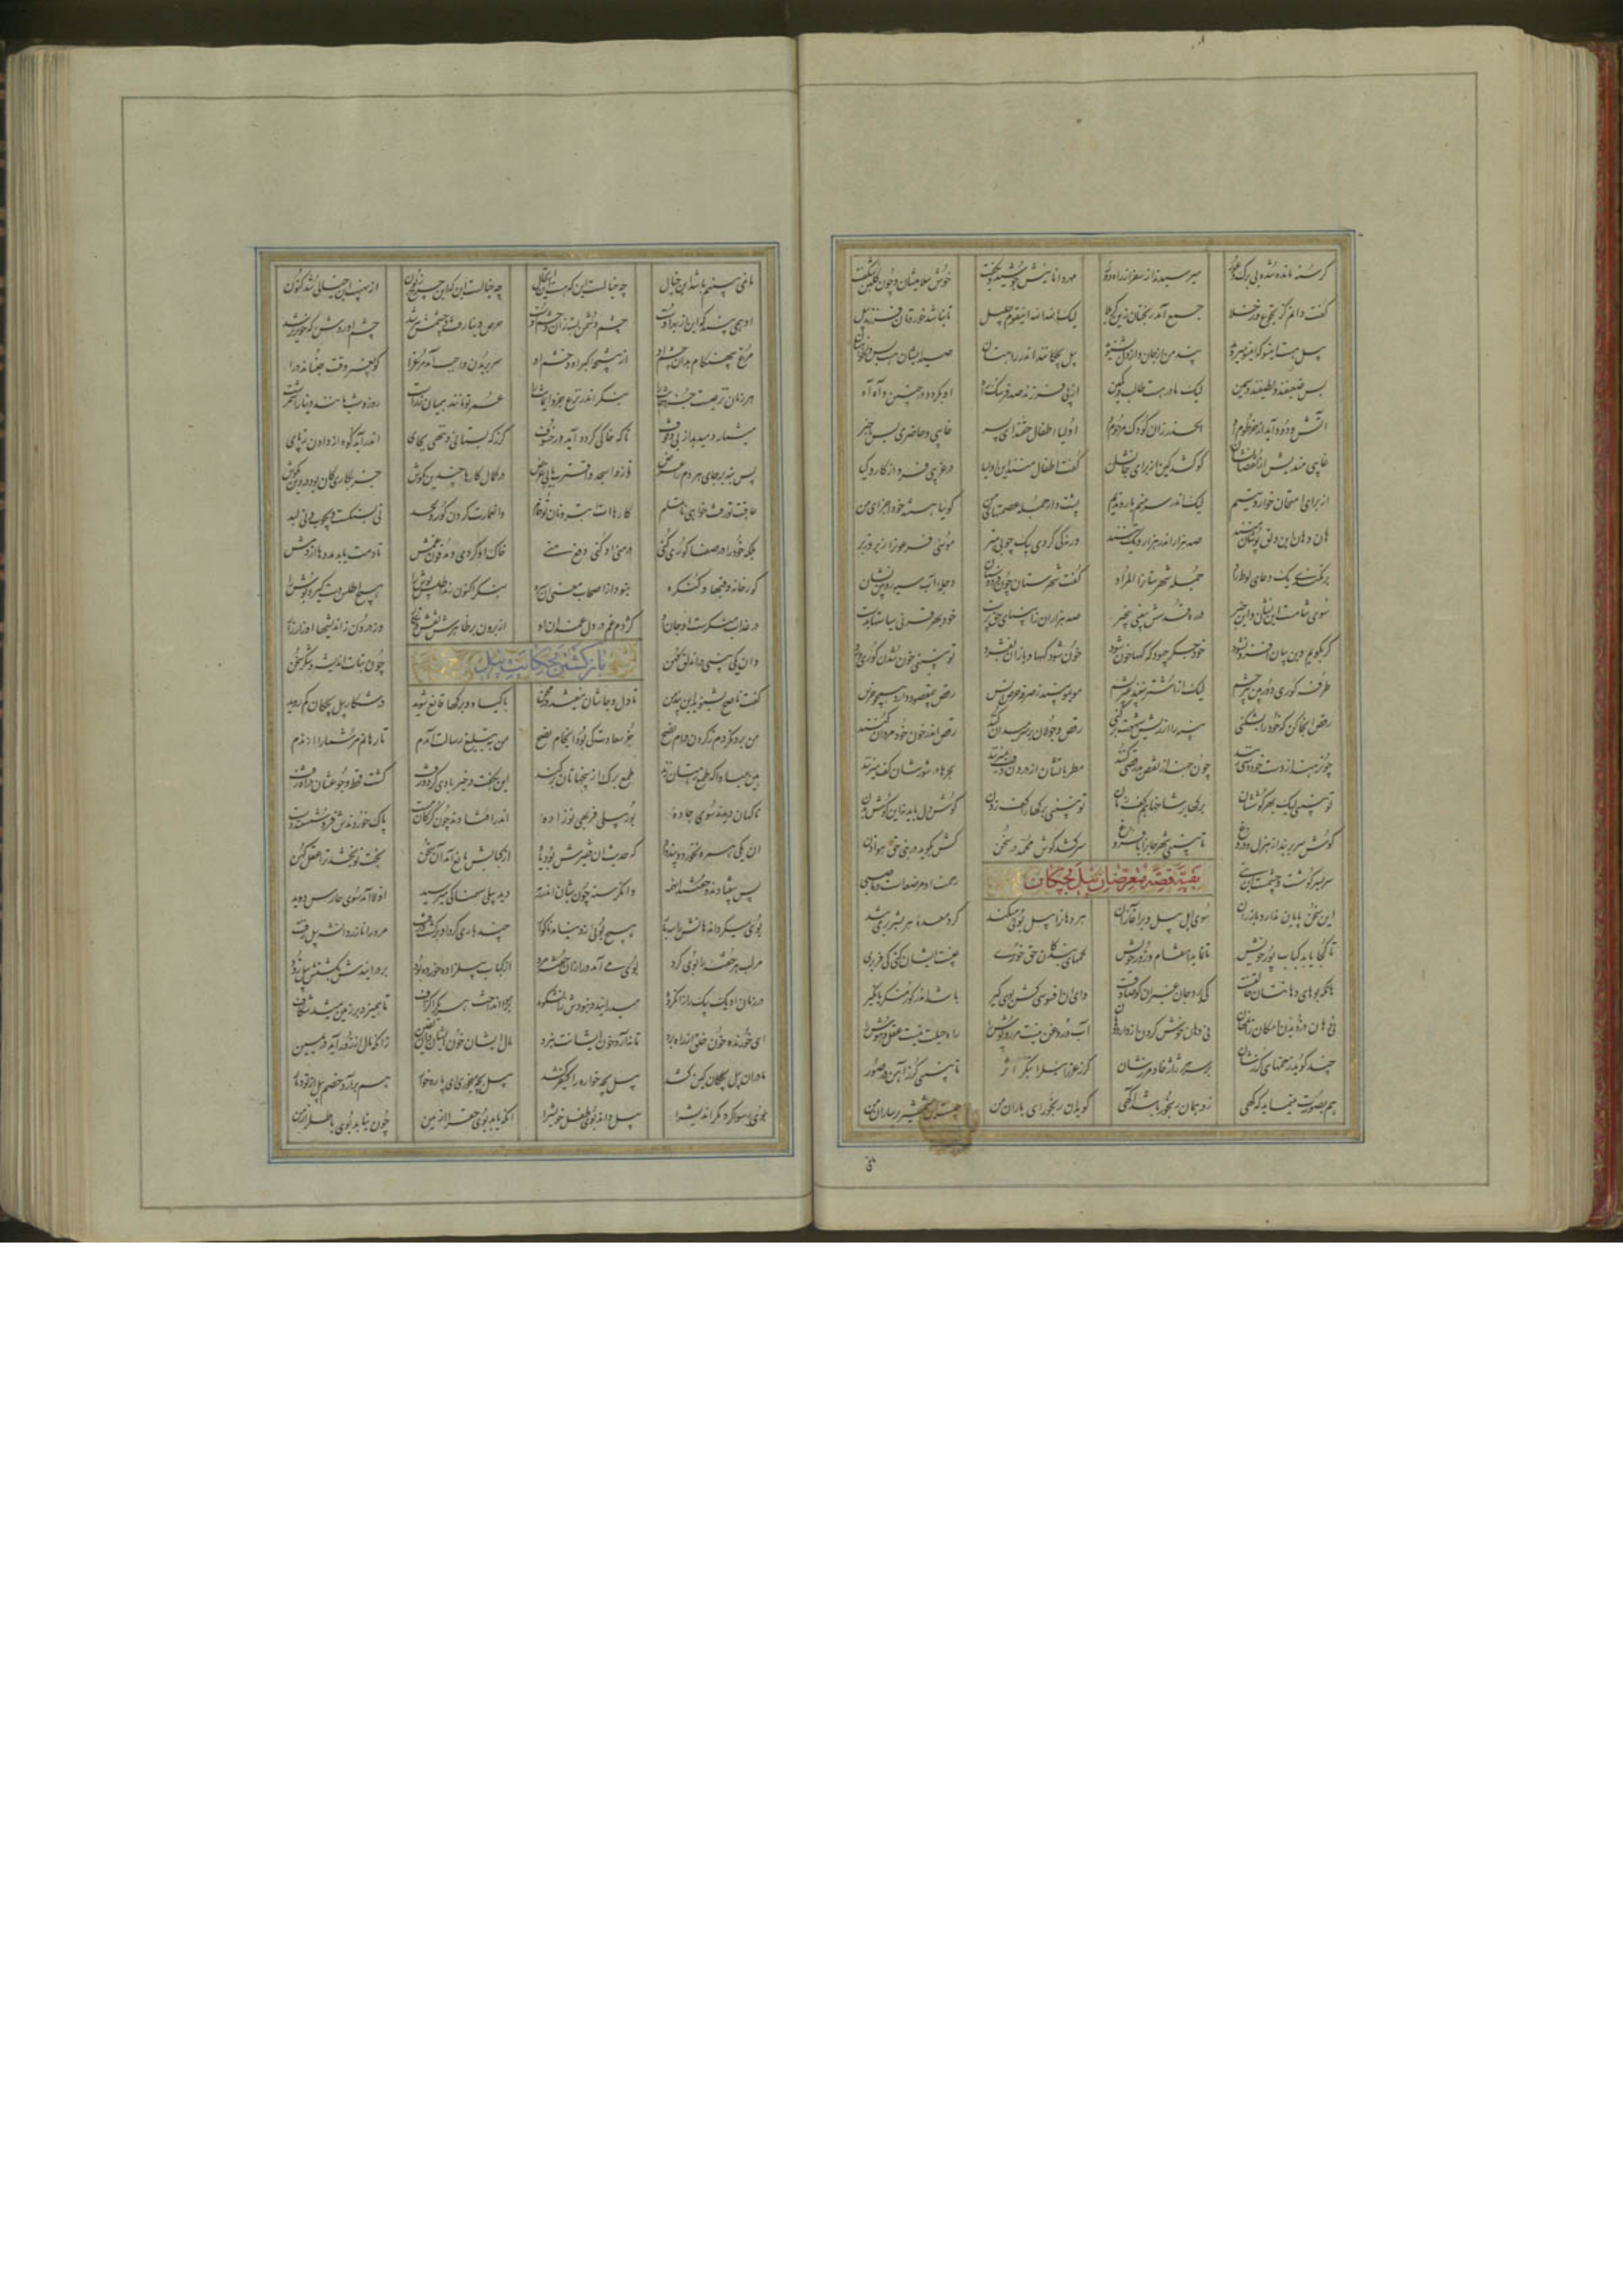 گرسنه مانده شده بی برگ و عور میرسیدند از سفر از راه دور مهر داناییش جوشید و بگفت خوش سلامیشان و چون گلبن شکفت
گفت دانم کز تجوع وز خلا جمع آمد رنجتان زین کربلا لیک الله الله ای قوم جلیل تا نباشد خوردتان فرزند پیل
پیل هست این سو که این سو میروید پند من از جان و از دل بشنوید پیل بچگانند اندر راهتان صید ایشان هست بس دلخواهتان
بس ضعیفند و لطیفند و سمین لیک مادر هست طالب در کمین از پی فرزند صد فرسنگ راه او بگردد در حنین و آه آه
آتش و دود آید از خرطوم او الحذر زان کودک مرحوم او اولیا اطفال حقند ای پسر غایبی و حاضری بس با خبر
غایبی مندیش از نقصانشان کو کشد کین از برای جانشان گفت اطفال منند این اولیا در غریبی فرد از کار و کیا
از برای امتحان خوار و یتیم لیک اندر سر منم یار و ندیم پشت دار جمله عصمتهای من گوییا هستند خود اجزای من
هان و هان این دلق پوشان منند صد هزار اندر هزار و یک تنند ورنه کی کردی به یک چوبی هنر موسئی فرعون را زیر و زبر
برنکندی یک دعای لوط راد جمله شهرستانشان را بی مراد گشت شهرستان چون فردوسشان دجله آب سیه رو بین نشان
سوی شامست این نشان و این خبر در ره قدسش ببینی بر گذر صد هزاران ز انبیای حق پرست خود بهر قرنی سیاستها بدست
گر بگویم وین بیان افزون شود خود جگر چبود که کهها خون شود خون شود کهها و باز آن بفسرد تو نبینی خون شدن کوری و رد
طرفه کوری دوربین تیزچشم لیک از اشتر نبیند غیر پشم مو بمو بیند ز صرفه حرص انس رقص بی مقصود دارد همچو خرس
رقص آنجا کن که خود را بشکنی پنبه را از ریش شهوت برکنی رقص و جولان بر سر میدان کنند رقص اندر خون خود مردان کنند
چون رهند از دست خود دستی زنند چون جهند از نقص خود رقصی کنند مطربانشان از درون دف میزنند بحرها در شورشان کف میزنند
تو نبینی لیک بهر گوششان برگها بر شاخها هم کف زنان تو نبینی برگها را کف زدن گوش دل باید نه این گوش بدن
گوش سر بر بند از هزل و دروغ تا ببینی شهر جان را با فروغ سر کشد گوش محمد در سخن کش بگوید در نبی حق هو اذن
سر بسر گوشست و چشمست این نبی بقیه قصه متعرضان پیل بچگان رحمت او مرضعست و ما صبی
این سخن پایان ندارد باز ران سوی اهل پیل و بر آغاز ران هر دهان را پیل بویی میکند گرد معده هر بشر بر می‌تند
تا کجا یابد کباب پور خویش تا نماید انتقام و زور خویش لحمهای بندگان حق خوری غیبت ایشان کنی کیفر بری
هان که بویای دهانتان خالقست کی برد جان غیر آن کو صادقست وای آن افسوسیی کش بوی گیر باشد اندر گور منکر یا نکیر
نی دهان دزدیدن امکان زان مهان نی دهان خوش کردن از دارو دهان آب و روغن نیست مر روپوش را راه حیلت نیست عقل و هوش را
چند کوبد زخمهای گرزشان بر سر هر ژاژخا و مرزشان گرز عزراییل را بنگر اثر تا نبینی گرز آهن در صور
هم بصورت می‌نماید گه گهی زو همان رنجور باشد آگهی گوید آن رنجور ای یاران من چیست این شمشیر بر ساران من
ما نمی‌بینیم باشد این خیال چه خیالست این که هست این ارتحال چه خیالست این که این چرخ نگون از نهیب این خیالی شد کنون
او همی بیند که این از بهر اوست چشم دشمن بسته زان و چشم دوست حرص دنیا رفت و چشمش تیز شد چشم او روشن گه خون ریز شد
مرغ بی هنگام شد آن چشم او از نتیجه کبر او و خشم او سر بریدن واجب آید مرغ را کو بغیر وقت جنباند درا
هر زمان نزعیست جزو جانت را بنگر اندر نزع جان ایمانت را عمر تو مانند همیان زرست روز و شب مانند دینار اشمرست
میشمارد میدهد زر بی وقوف تا که خالی گردد و آید خسوف گر ز که بستانی و ننهی بجای اندر آید کوه از دادن ز پای
پس بنه بر جای هر دم را عوض تا ز واسجد واقترب یابی غرض در تمام کارها چندین مکوش جز بکاری کان بود در دین مکوش
عاقبت تو رفت خواهی ناتمام کارهایت ابتر و نان تو خام وان عمارت کردن گور و لحد نی بسنگست و بچوب و نی لبد
بلکه خود را در صفا گوری کنی در منی او کنی دفن منی خاک او گردی و مدفون غمش تا دمت یابد مددها از دمش
گورخانه و قبه‌ها و کنگره نبود از اصحاب معنی آن سره بنگر اکنون زنده اطلس پوش را هیچ اطلس دست گیرد هوش را
در عذاب منکرست آن جان او گژدم غم در دل غمدان او از برون بر ظاهرش نقش و نگار وز درون ز اندیشها او زار زار
وان یکی بینی در آن دلق کهن بازگشتن بحکایت پیل چون نبات اندیشه و شکر سخن
گفت ناصح بشنوید این پند من تا دل و جانتان نگردد ممتحن با گیاه و برگها قانع شوید در شکار پیل بچگان کم روید
من برون کردم ز گردن وام نصح جز سعادت کی بود انجام نصح من به تبلیغ رسالت آمدم تا رهانم مر شما را از ندم
هین مبادا که طمع رهتان زند طمع برگ از بیخهاتان بر کند این بگفت و خیر بادی کرد و رفت گشت قحط و جوعشان در راه زفت
ناگهان دیدند سوی جاده پور پیلی فربهی نو زاده اندر افتادند چون گرگان مست پاک خوردندش فرو شستند دست
آن یکی همره نخورد و پند داد که حدیث آن فقیرش بود یاد از کبابش مانع آمد آن سخن بخت نو بخشد ترا عقل کهن
پس بیفتادند و خفتند آن همه وان گرسنه چون شبان اندر رمه دید پیلی سهمناکی میرسید اولا آمد سوی حارس دوید
بوی میکرد آن دهانش را سه بار هیچ بویی زو نیامد ناگوار چند باری گرد او گشت و برفت مر ورا نازرد آن شه پیل زفت
مر لب هر خفته را بوی کرد بوی می‌آمد ورا زان خفته مرد از کباب پیل زاده خورده بود بر درانید و بکشتش پیل زود
در زمان او یک بیک را زان گروه میدرانید و نبودش زان شکوه بر هوا انداخت هر یک را گزاف تا همیزد بر زمین میشد شکاف
ای خورنده خون خلق از راه برد تا نه آرد خون ایشانت نبرد مال ایشان خون ایشان دان یقین زانکه مال از زور آید در یمین
مادر آن پیل بچگان کین کشد پیل بچه خواره را کیفر کشد پیل بچه میخوری ای پاره خوار هم برآرد خصم پیل از تو دمار
بوی رسوا کرد مکر اندیش را پیل داند بوی طفل خویش را آنکه یابد بوی حق را از یمن چون نیابد بوی باطل را ز من